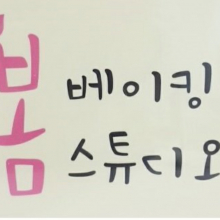 봄
베이킹
스튜디오